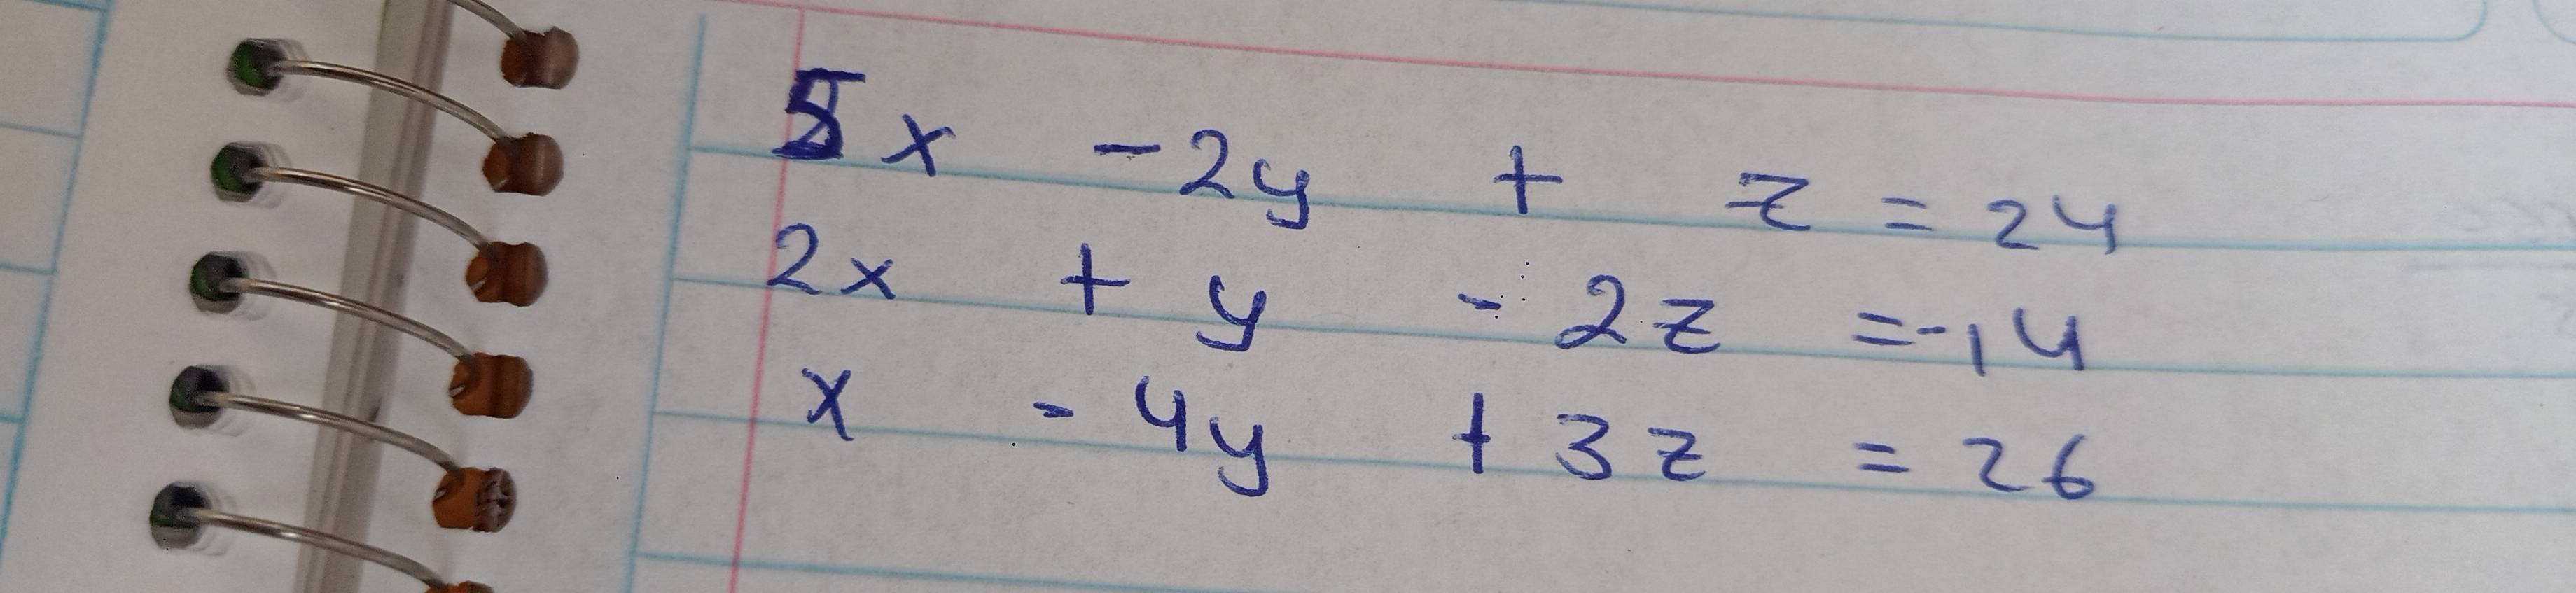 5x - 2y + z = 24
2x + y - 2z = -14
x - 4y + 3z = 26